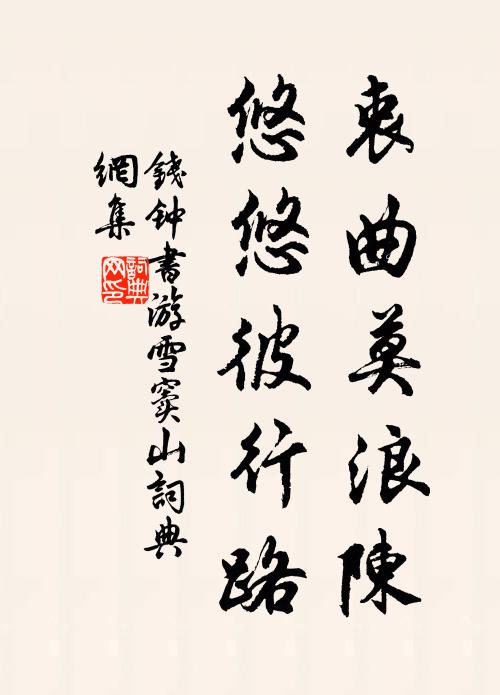 衷曲莫浪陳
悠悠彼行路
錢钟書游雪竇山詞典
網集
詞典網印